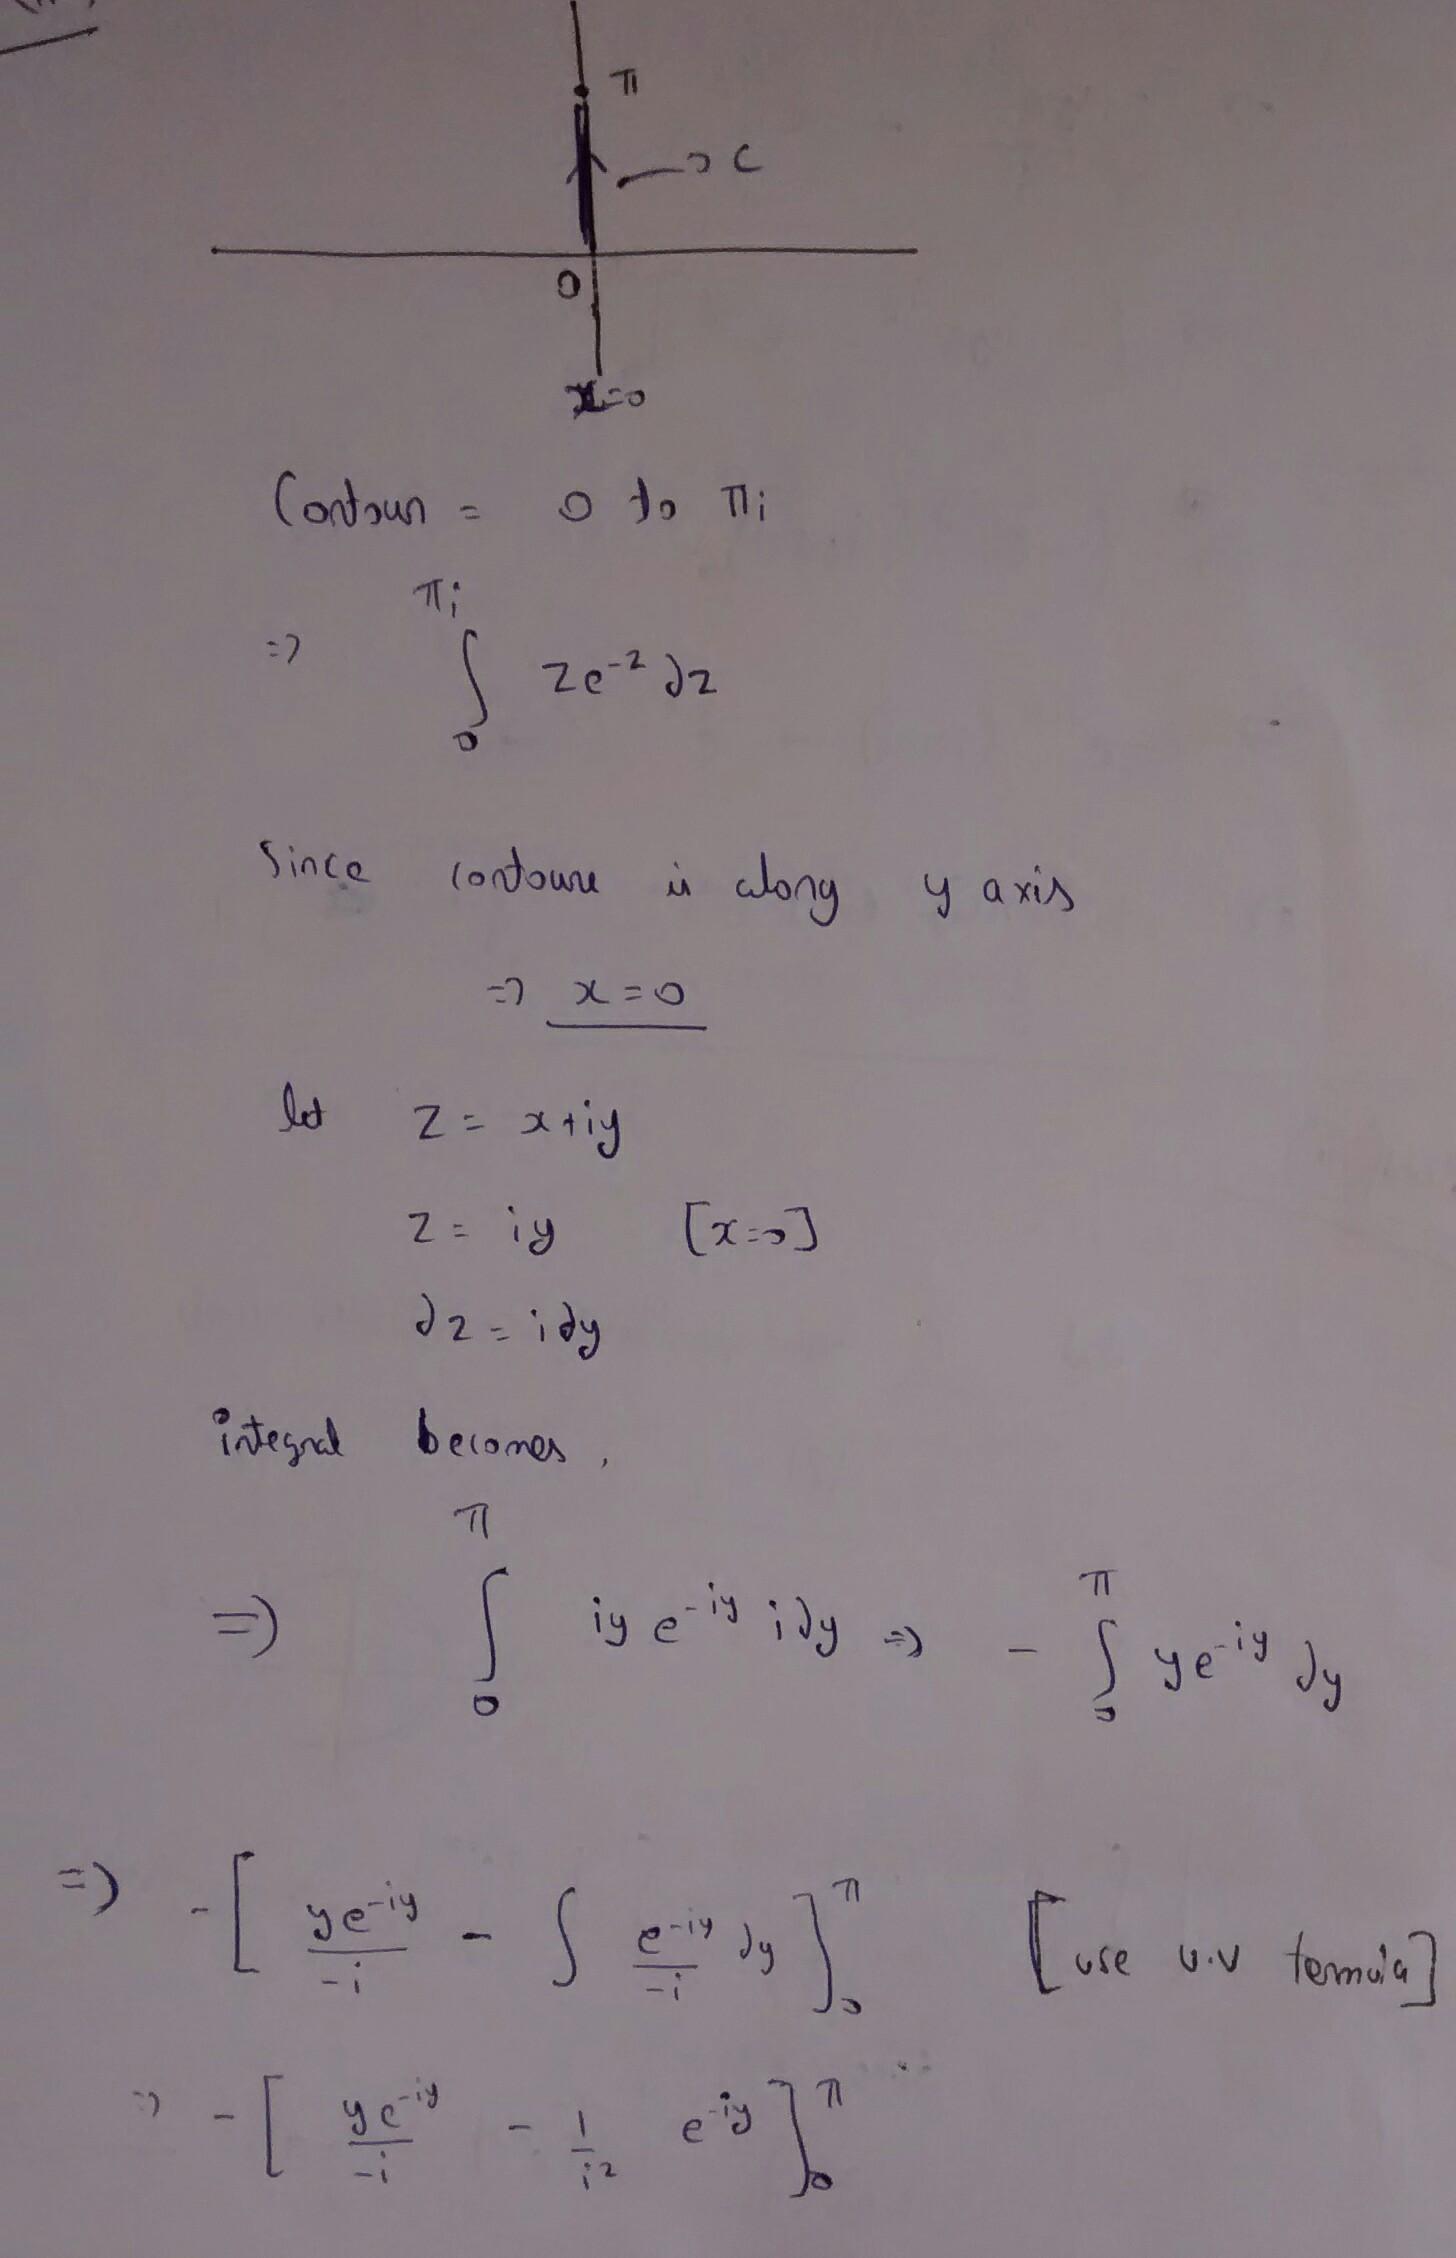 π
→ C
0
x=0
Contour = 0 to πi
=> ∫₀^{πi} ze^{-z} dz
Since contoure is along y axis
=> x=0
let z = x+iy
z = iy [x=0]
dz = idy
integral becomes,
=> ∫₀^π iy e^{-iy} idy => - ∫₀^π ye^{-iy} dy
=> -[ ye^{-iy}/-i - ∫ e^{-iy}/-i dy ]₀^π [use u.v]
=> -[ ye^{-iy}/-i - 1/i² e^{-iy} ]₀^π